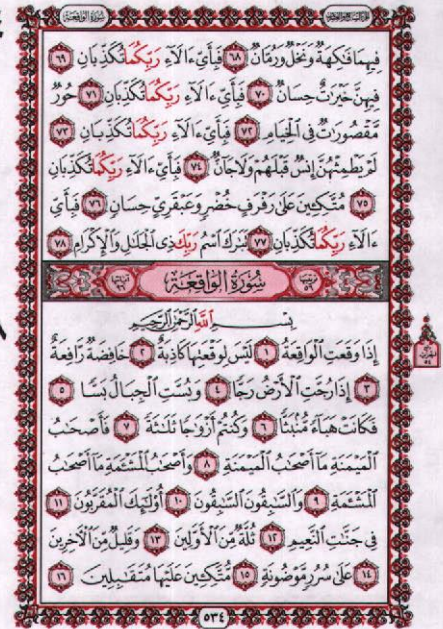 سُورَةُ الوَاقِعَةِ
فِيهِمَا فَٰكِهَةٌ وَنَخْلٌ وَرُمَّانٌ ٦٨ فَبِأَيِّ ءَالَآءِ رَبِّكُمَا تُكَذِّبَانِ ٦٩
فِيهِنَّ خَيْرَٰتٌ حِسَانٌ ٧٠ فَبِأَيِّ ءَالَآءِ رَبِّكُمَا تُكَذِّبَانِ ٧١ حُورٌ
مَّقْصُورَٰتٌ فِي الْخِيَامِ ٧٢ فَبِأَيِّ ءَالَآءِ رَبِّكُمَا تُكَذِّبَانِ ٧٣
لَمْ يَطْمِثْهُنَّ إِنسٌ قَبْلَهُمْ وَلَا جَآنٌّ ٧٤ فَبِأَيِّ ءَالَآءِ رَبِّكُمَا تُكَذِّبَانِ
٧٥ مُتَّكِـِٔينَ عَلَىٰ رَفْرَفٍ خُضْرٍ وَعَبْقَرِيٍّ حِسَانٍ ٧٦ فَبِأَيِّ
ءَالَآءِ رَبِّكُمَا تُكَذِّبَانِ ٧٧ تَبَٰرَكَ اسْمُ رَبِّكَ ذِي الْجَلَٰلِ وَالْإِكْرَامِ ٧٨
سُورَةُ الوَاقِعَةِ
بِسْمِ اللَّهِ الرَّحْمَٰنِ الرَّحِيمِ
إِذَا وَقَعَتِ الْوَاقِعَةُ ١ لَيْسَ لِوَقْعَتِهَا كَاذِبَةٌ ٢ خَافِضَةٌ رَّافِعَةٌ
٣ إِذَا رُجَّتِ الْأَرْضُ رَجًّا ٤ وَبُسَّتِ الْجِبَالُ بَسًّا ٥
فَكَانَتْ هَبَآءً مُّنۢبَثًّا ٦ وَكُنتُمْ أَزْوَٰجًا ثَلَٰثَةً ٧ فَأَصْحَٰبُ
الْمَيْمَنَةِ مَآ أَصْحَٰبُ الْمَيْمَنَةِ ٨ وَأَصْحَٰبُ الْمَشْـَٔمَةِ مَآ أَصْحَٰبُ
الْمَشْـَٔمَةِ ٩ وَالسَّٰبِقُونَ السَّٰبِقُونَ ١٠ أُو۟لَٰٓئِكَ الْمُقَرَّبُونَ ١١
فِي جَنَّٰتِ النَّعِيمِ ١٢ ثُلَّةٌ مِّنَ الْأَوَّلِينَ ١٣ وَقَلِيلٌ مِّنَ الْآخِرِينَ
١٤ عَلَىٰ سُرُرٍ مَّوْضُونَةٍ ١٥ مُّتَّكِـِٔينَ عَلَيْهَا مُتَقَٰبِلِينَ ١٦
٥٣٤